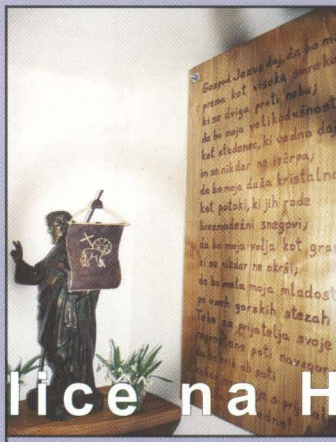 Gospod Jezus daj, da bo mo
prema kot visoka smreka
ki se dviga proti nebu;
da bo moja velikodušnost
kot studenec, ki vedno da
in se nikdar ne izčrpa;
da bo moja duša kristalna
kot potoki, ki jih rode
brezmadežni snegovi;
da bo moja volja kot gran
ki se nikdar ne okrši;
da bo imela moja mladost
po vseh gorskih stezah
Tebe za prijatelja svoje
poti
lice na H